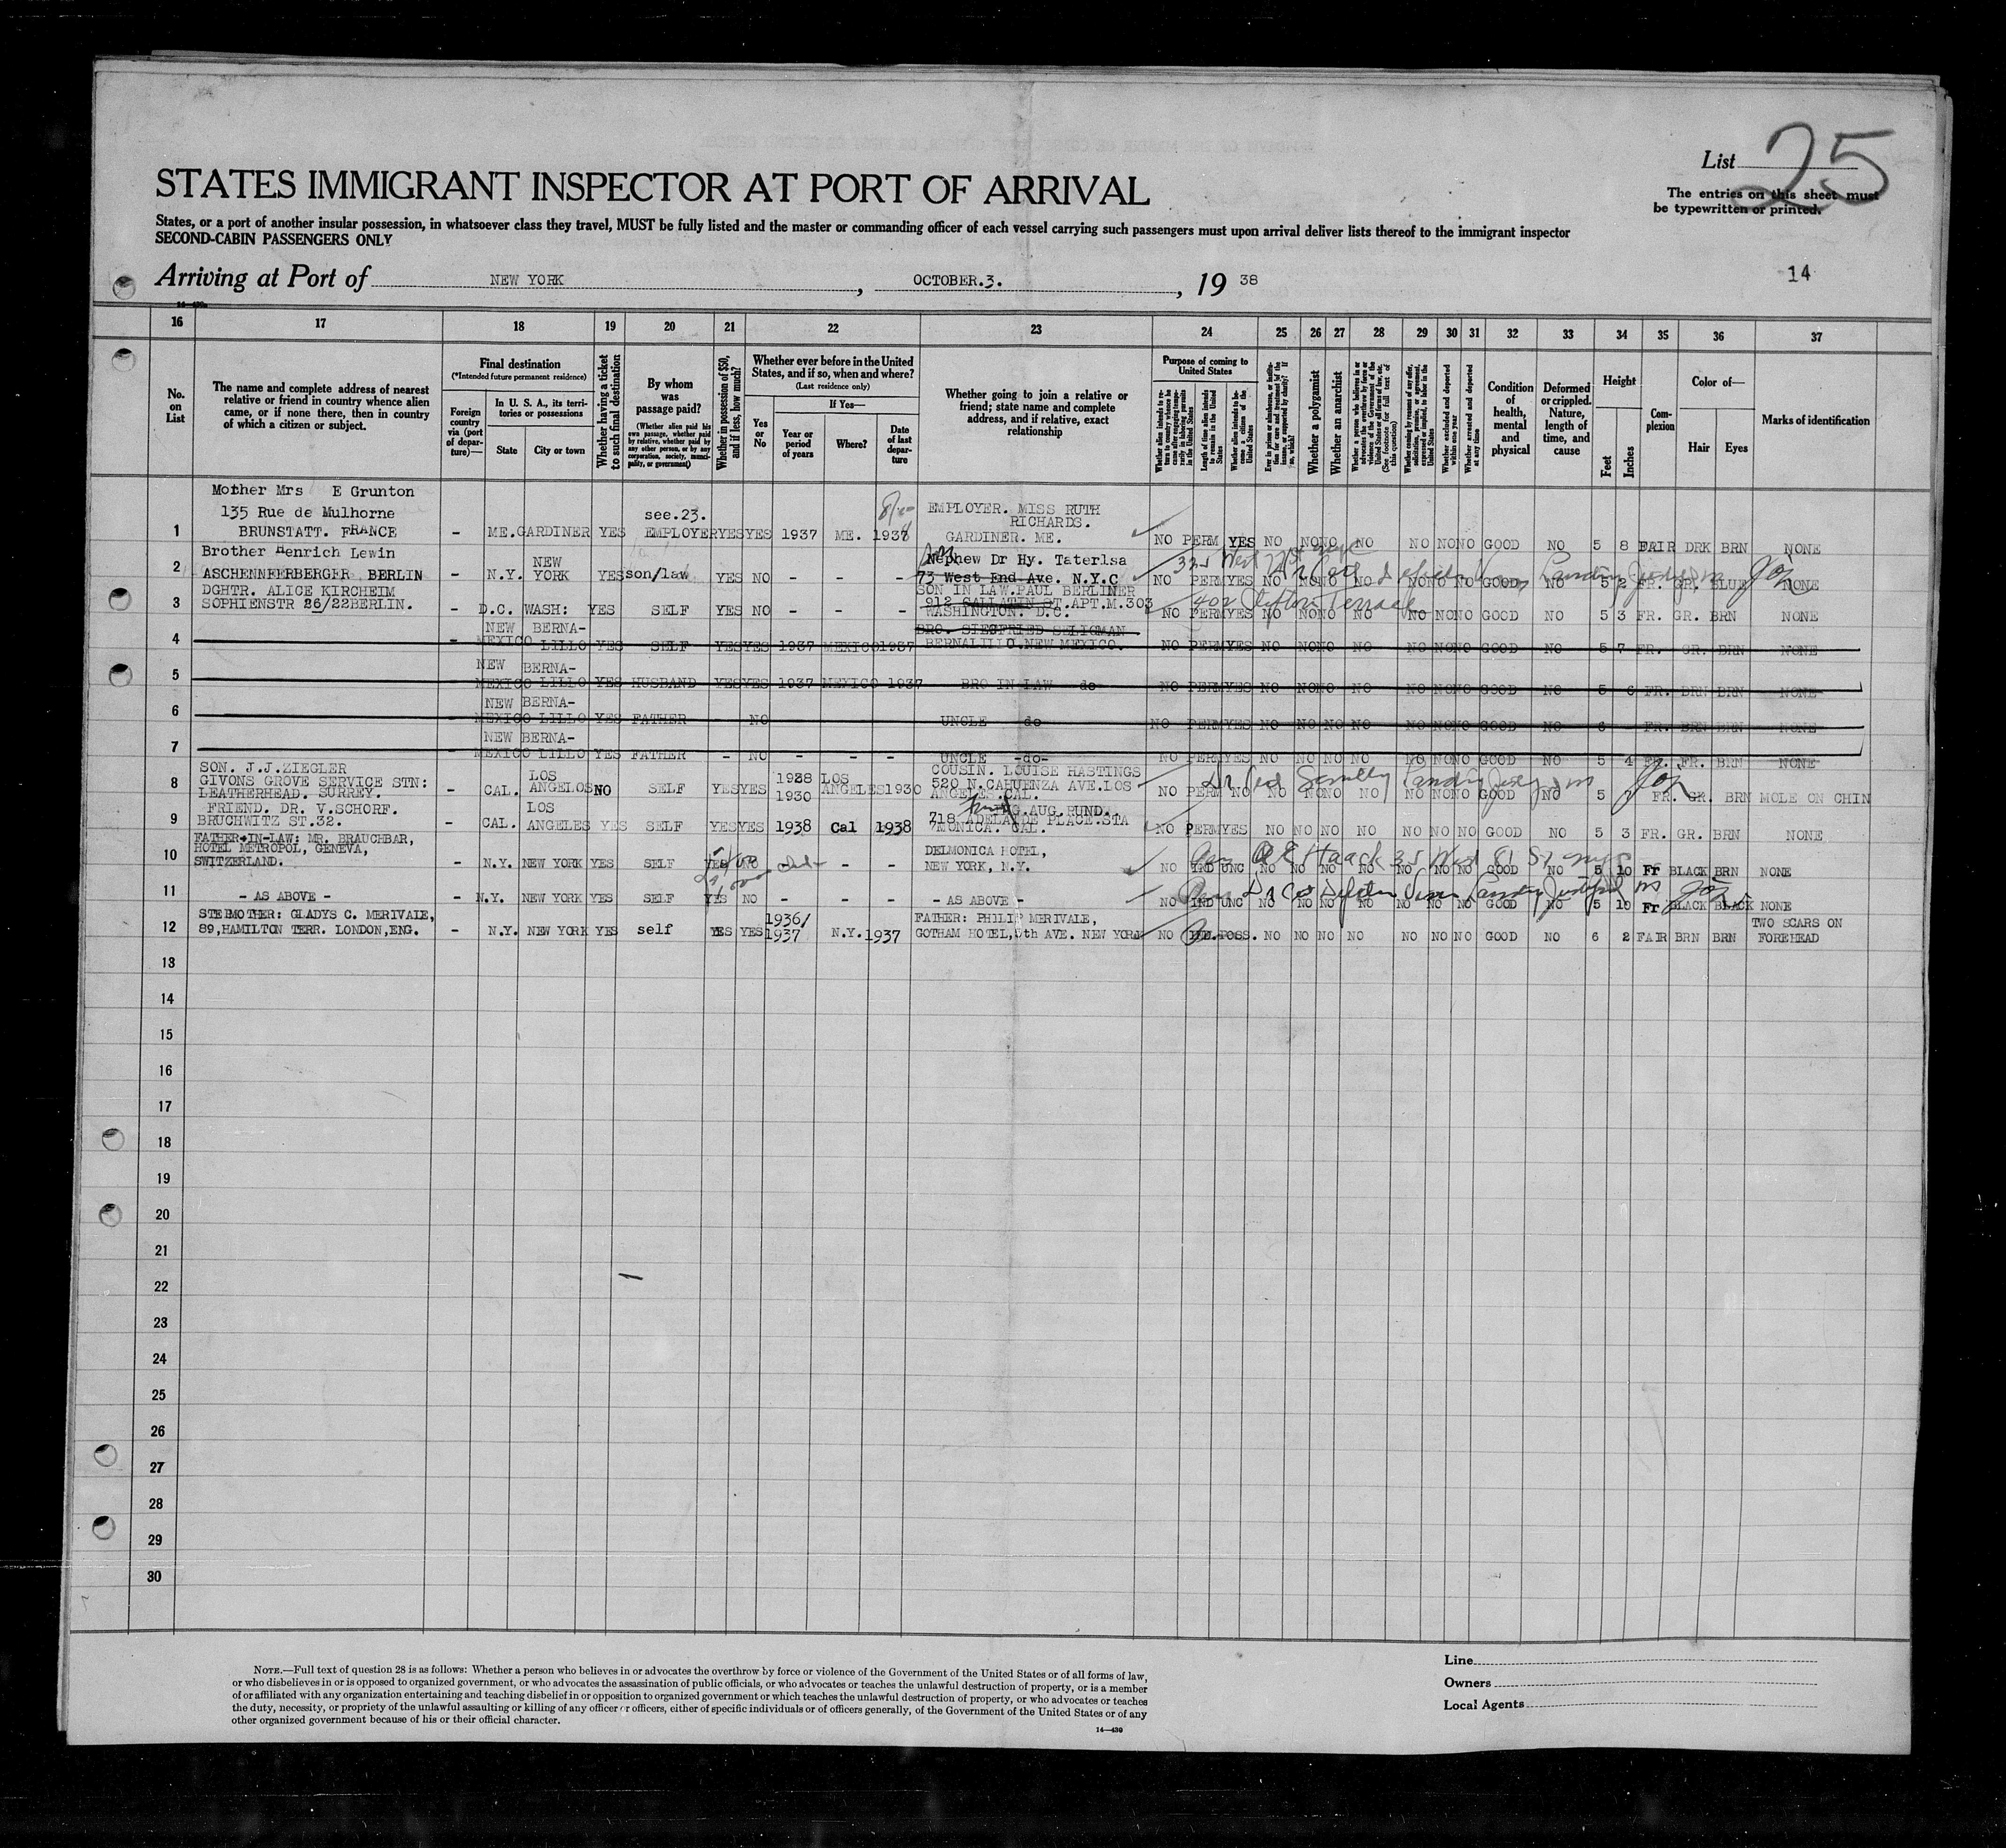 List 25
The entries on this sheet must
be typewritten or printed.
STATES IMMIGRANT INSPECTOR AT PORT OF ARRIVAL
States, or a port of another insular possession, in whatsoever class they travel, MUST be fully listed and the master or commanding officer of each vessel carrying such passengers must upon arrival deliver lists thereof to the immigrant inspector
SECOND-CABIN PASSENGERS ONLY
Arriving at Port of NEW YORK, OCTOBER.3., 19 38
14
16 17 18 19 20 21 22 23 24 25 26 27 28 29 30 31 32 33 34 35 36 37
No. on List
The name and complete address of nearest
relative or friend in country whence alien
came, or if none there, then in country
of which a citizen or subject.
Final destination
(*Intended future permanent residence)
Foreign country via (port of departure)—
In U. S. A., its territories or possessions
State
City or town
Whether having a ticket to such final destination
By whom was passage paid?
(Whether alien paid his own passage, whether paid by relative, whether paid by any other person, or by any corporation, society, municipality, or government)
Whether in possession of $50, and if less, how much?
Whether ever before in the United States, and if so, when and where?
(Last residence only)
Yes or No
If Yes—
Year or period of years
Where?
Date of last departure
Whether going to join a relative or
friend; state name and complete
address, and if relative, exact
relationship
Purpose of coming to United States
Length of time alien intends to remain in the United States
Whether alien intends to become a citizen of the United States
Whether a polygamist
Whether an anarchist
Whether excluded and deported within one year
Whether arrested and deported at any time
Condition of health, mental and physical
Deformed or crippled. Nature, length of time, and cause
Height
Feet
Inches
Complexion
Color of—
Hair
Eyes
Marks of identification
Mother Mrs E Grunton
135 Rue de Mulhorne see.23. EMPLOYER. MISS RUTH
RICHARDS.
1 BRUNSTATT. FRANCE - ME. GARDINER YES EMPLOYER YES YES 1937 ME. 1938 GARDINER. ME. NO PERM YES NO NO NO NO NO NO NO GOOD NO 5 8 FAIR DRK BRN NONE
Brother Henrich Lewin NEW Nephew Dr Hy. Taterlsa
2 ASCHENNEERBERGER BERLIN - N.Y. YORK YES son/law YES NO - - - 73 West End Ave. N.Y.C NO PERM YES NO NO NO NO NO NO NO GOOD NO 5 2 FR. GR. BLUE NONE
DGHTR. ALICE KIRCHEIM SON IN LAW.PAUL BERLINER
SOPHIENSTR 26/22BERLIN. 912 GALLATIN ST.APT.M.303 402 Clifton Terrace
3 - D.C. WASH: YES SELF YES NO - - - WASHINGTON. D.C. NO PERM YES NO NO NO NO NO NO NO GOOD NO 5 3 FR. GR. BRN NONE
NEW BERNA- BRO. SIEGFRIED SELIGMAN
4 - MEXICO LILLO YES SELF YES YES 1937 MEXICO 1937 BERNALILLO.NEW MEXICO. NO PERM YES NO NO NO NO NO NO NO GOOD NO 5 7 FR. GR. BRN NONE
NEW BERNA-
5 - MEXICO LILLO YES HUSBAND YES YES 1937 MEXICO 1937 BRO IN LAW -do- NO PERM YES NO NO NO NO NO NO NO GOOD NO 5 6 FR. BRN BRN NONE
NEW BERNA-
6 - MEXICO LILLO YES FATHER - NO UNCLE -do- NO PERM YES NO NO NO NO NO NO NO GOOD NO 6 - FR. BRN BRN NONE
NEW BERNA-
7 - MEXICO LILLO YES FATHER - NO - - - UNCLE -do- NO PERM YES NO NO NO NO NO NO NO GOOD NO 5 4 FR. FR. BRN NONE
SON. J.J.ZIEGLER LOS 1928 LOS COUSIN. LOUISE HASTINGS
GIVONS GROVE SERVICE STN: 520 N.CAHUENZA AVE.LOS
8 LEATHERHEAD. SURREY. - CAL. ANGELOS NO SELF YES YES 1930 ANGELES 1930 ANGELES.CAL. NO PERM NO NO NO NO NO NO NO NO GOOD NO 5 FR. GR. BRN MOLE ON CHIN
FRIEND. DR. V.SCHORF. LOS G.AUG.RUND.
9 BRUCHWITZ ST.32. - CAL. ANGELES YES SELF YES YES 1938 Cal 1938 718 ADELAIDE PLACE.STA
MONICA. CAL. NO PERM YES NO NO NO NO NO NO NO GOOD NO 5 3 FR. GR. BRN NONE
FATHER-IN-LAW: MR. BRAUCHBAR,
HOTEL METROPOL, GENEVA, DELMONICA HOTEL,
10 SWITZERLAND. - N.Y. NEW YORK YES SELF YES NO - - NEW YORK, N.Y. NO IND UNC NO NO NO NO NO NO NO GOOD NO 5 10 Fr BLACK BRN NONE
11 - AS ABOVE - - N.Y. NEW YORK YES SELF YES NO - - - - AS ABOVE - NO IND UNC NO NO NO NO NO NO NO GOOD NO 5 10 Fr BLACK BLACK NONE
STEPMOTHER: GLADYS C. MERIVALE, 1936/ FATHER: PHILIP MERIVALE, TWO SCARS ON
12 89,HAMILTON TERR. LONDON,ENG. - N.Y. NEW YORK YES self YES YES 1937 N.Y. 1937 GOTHAM HOTEL,5th AVE. NEW YORK NO NO NO NO NO NO NO NO GOOD NO 6 2 FAIR BRN BRN FOREHEAD
13
14
15
16
17
18
19
20
21
22
23
24
25
26
27
28
29
30
NOTE.—Full text of question 28 is as follows: Whether a person who believes in or advocates the overthrow by force or violence of the Government of the United States or of all forms of law,
or who disbelieves in or is opposed to organized government, or who advocates the assassination of public officials, or who advocates or teaches the unlawful destruction of property, or is a member
of or affiliated with any organization entertaining and teaching disbelief in or opposition to organized government or which teaches the unlawful destruction of property, or who advocates or teaches
the duty, necessity, or propriety of the unlawful assaulting or killing of any officer or officers, either of specific individuals or of officers generally, of the Government of the United States or of any
other organized government because of his or their official character.
14—439
Line
Owners
Local Agents